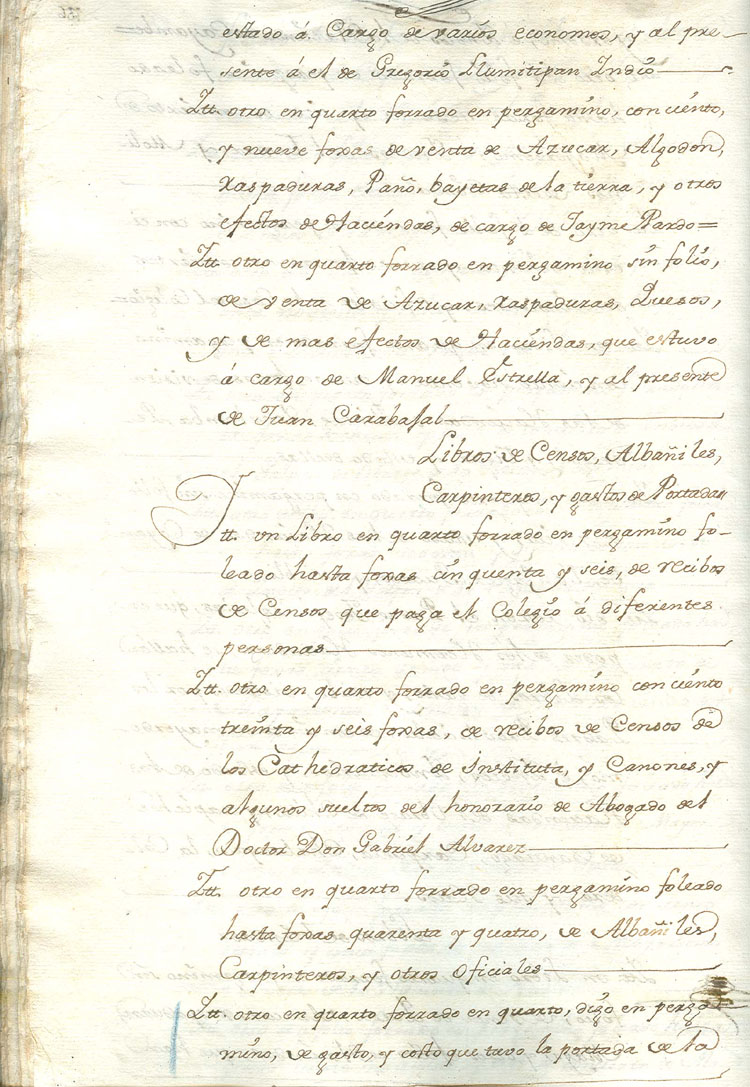 estado á Cargo de varios economos, y al pre-
sente á el de Gregorio Llumitipan Indio
Itt. otro en quarto forrado en pergamino, con ciento,
y nueve foxas de venta de Azucar, Algodon,
Raspaduras, Paño, bayetas de la tierra, y otros
efectos de Haciéndas, de cargo de Jayme Pardo=
Itt. otro en quarto forrado en pergamino sin folio,
de venta de Azucar, raspaduras, Quesos,
y de mas efectos de Haciéndas, que estuvo
á cargo de Manuel Estrella, y al presente
de Juan Carabajal
Libros de Censos, Albañiles,
Carpinteros, y gastos de Portadas
Itt. vn Libro en quarto forrado en pergamino fo-
leado hasta foxas cinquenta y seis, de recibos
de Censos que paga el Colegio á diferentes
personas
Itt. otro en quarto forrado en pergamino con ciento
treinta y seis foxas, de recibos de Censos de
los Cathedraticos de Instituta, y Canones, y
algunos sueltos del honorario de Abogado del
Doctor Don Gabriel Alvarez
Itt. otro en quarto forrado en pergamino foleado
hasta foxas quarenta y quatro, de Albañiles,
Carpinteros, y otros Oficiales
Itt. otro en quarto forrado en quarto, digo en perga
mino, de gasto, y costo que tuvo la portada de la